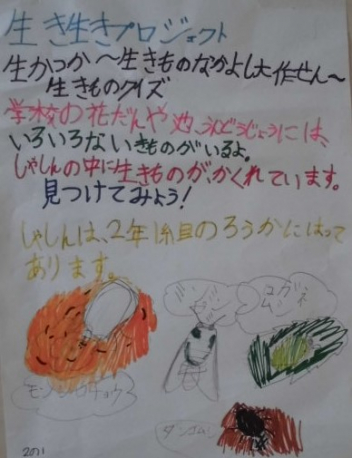 生き生きプロジェクト
生かつか〜生きものなかよし大作せん〜
生きものクイズ
学校の花だんや池、うんどうじょうには、
いろいろないきものがいるよ。
しゃしんの中に生きものが、かくれています。
見つけてみよう!
しゃしんは、2年1組目のろうかにはって
あります。
モンシロチョウ
コガネ
ムシ
ダンゴムシ